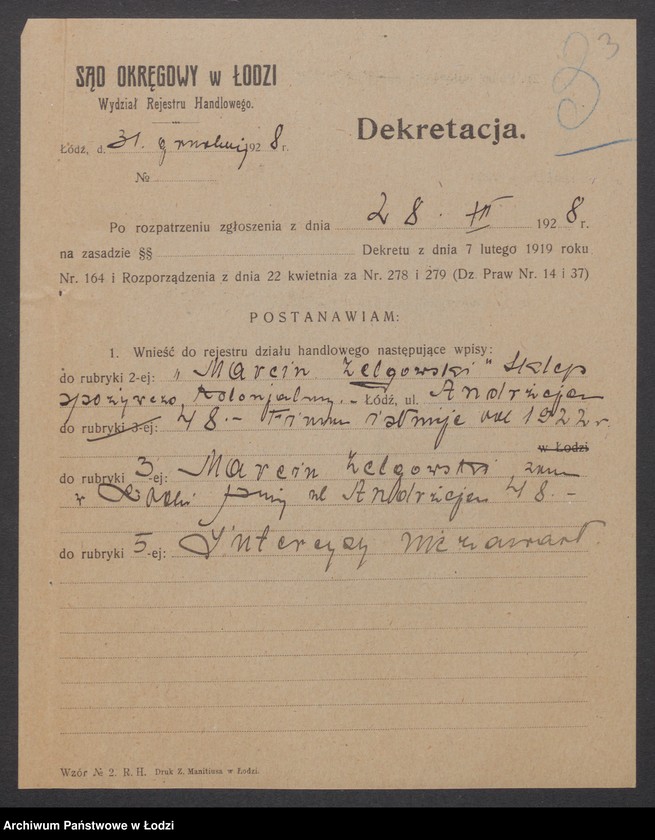 3
SĄD OKRĘGOWY w ŁODZI
Wydział Rejestru Handlowego.
Dekretacja.
Łódź, d. 31. grudnia 1928 r.
№
Po rozpatrzeniu zgłoszenia z dnia 28. XII 1928 r.
na zasadzie §§ Dekretu z dnia 7 lutego 1919 roku
Nr. 164 i Rozporządzenia z dnia 22 kwietnia za Nr. 278 i 279 (Dz. Praw Nr. 14 i 37)
POSTANAWIAM:
1. Wnieść do rejestru działu handlowego następujące wpisy:
do rubryki 2-ej: „Marcin Zelgowski" Sklep
spożywczo kolonjalny. - Łódź, ul. Andrzeja
do rubryki 3-ej: 48.- Firma istnieje od 1922 r.
w Łodzi
do rubryki 3-ej: Marcin Zelgowski zam
w Łodzi przy ul Andrzeja 48.-
do rubryki 5-ej: Intercyzy nie zawarł.
Wzór № 2. R. H. Druk Z. Manitiusa w Łodzi.
Archiwum Państwowe w Łodzi